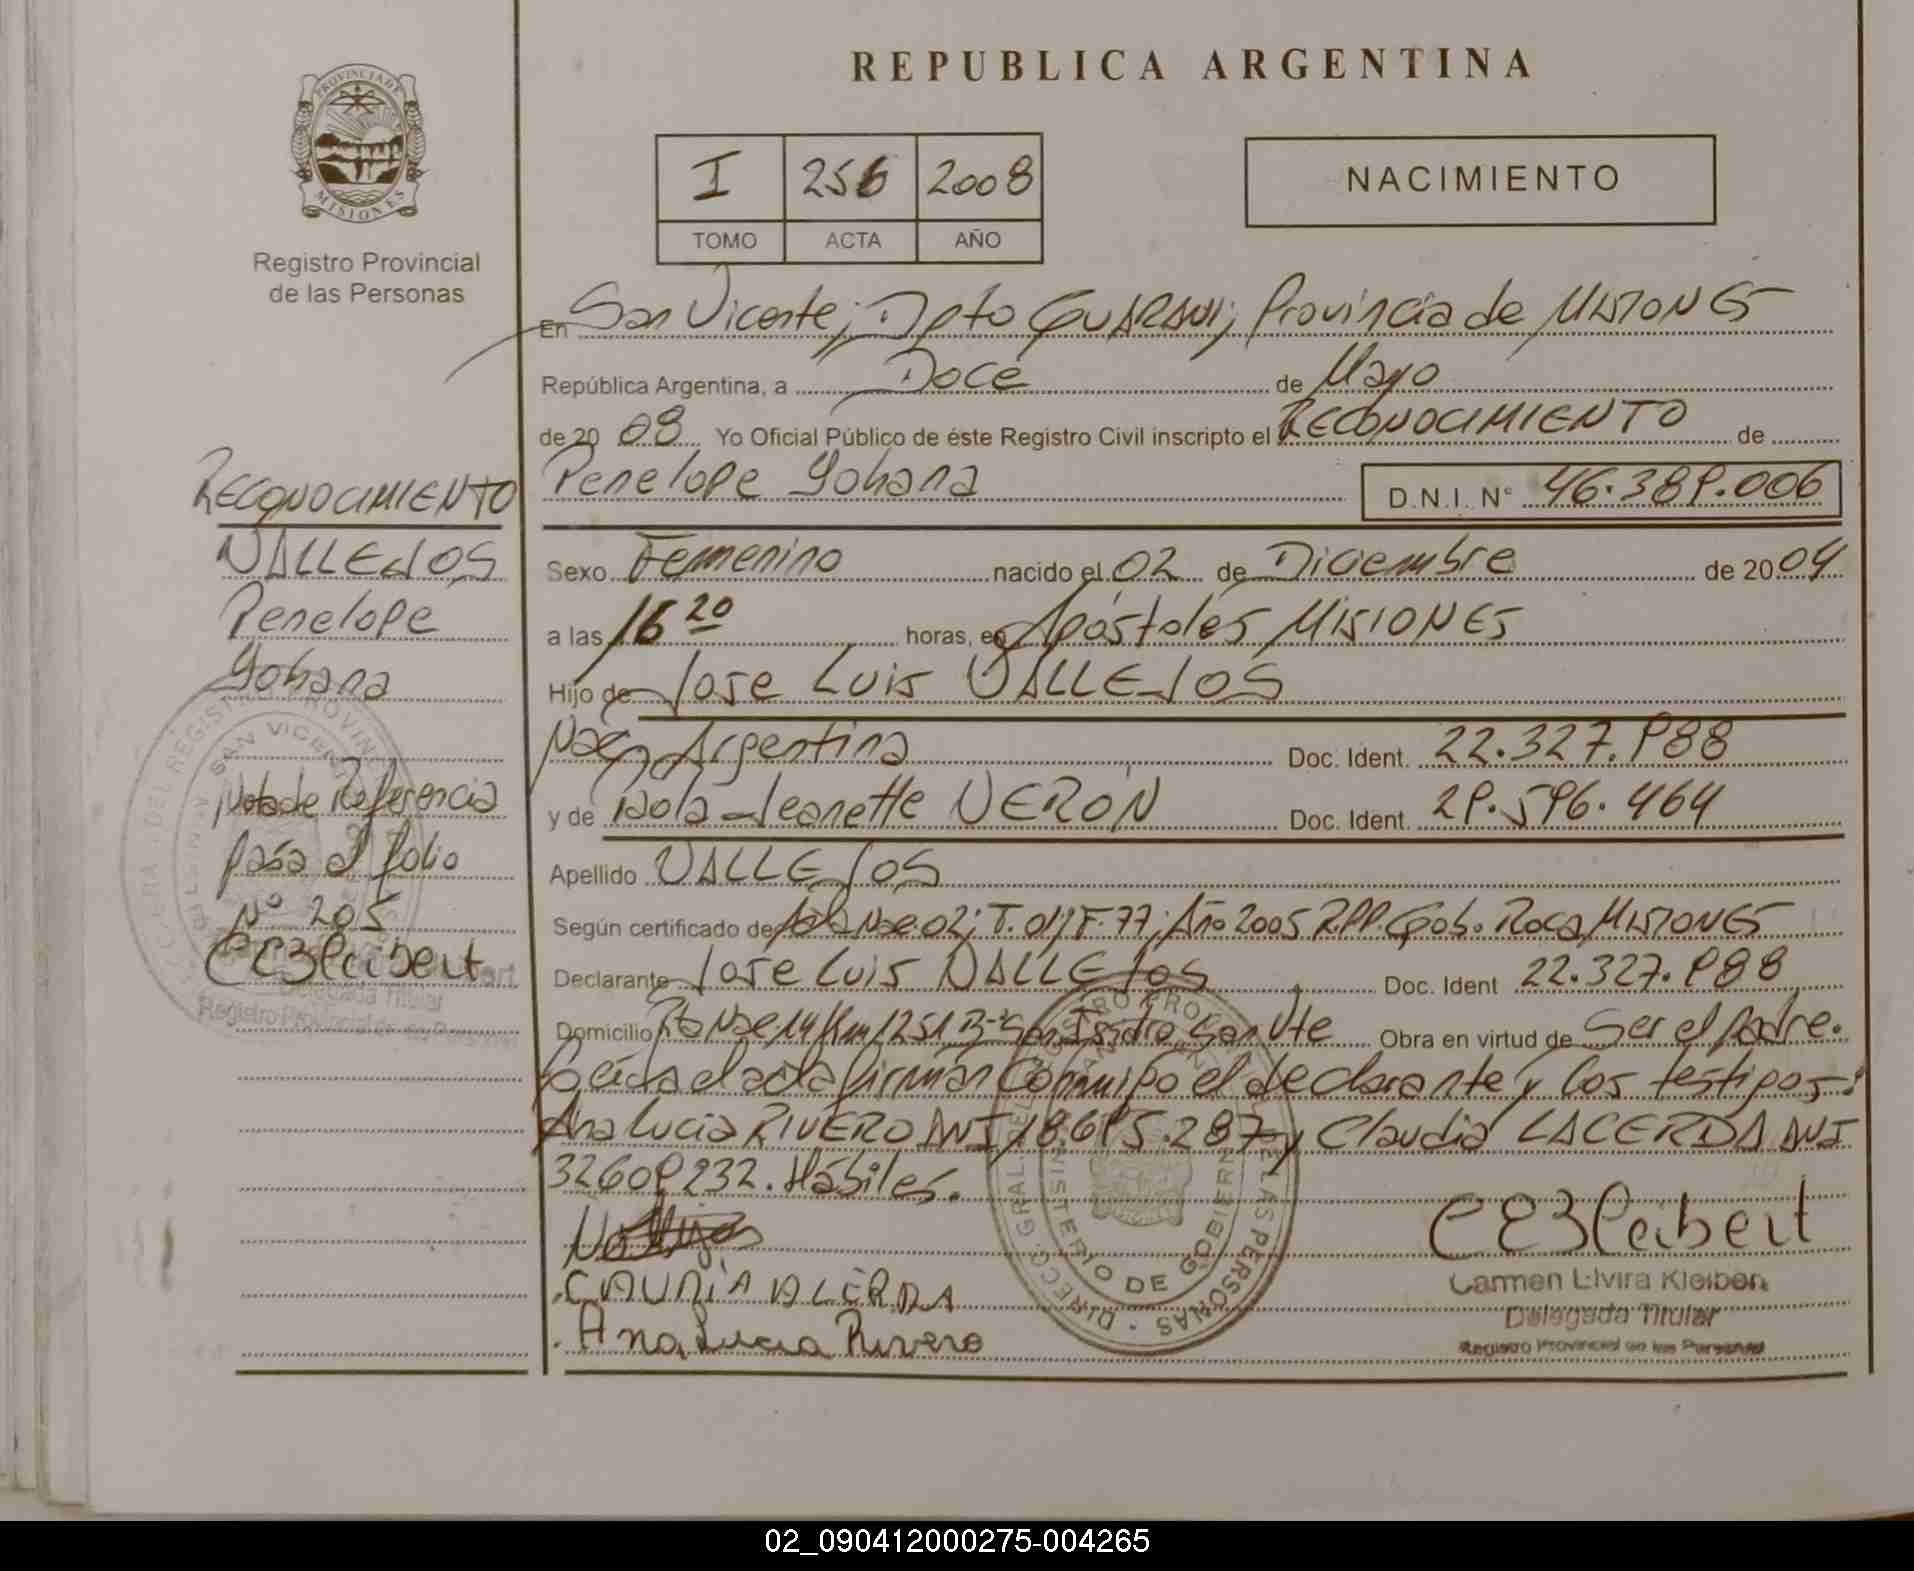 REPUBLICA ARGENTINA
PROVINCIA DE
MISIONES
Registro Provincial
de las Personas
I 256 2008
TOMO ACTA AÑO
NACIMIENTO
En San Vicente; Dpto GUARANI; Provincia de MISIONES
República Argentina, a Doce de Mayo
de 20 08 Yo Oficial Público de éste Registro Civil inscripto el RECONOCIMIENTO de
Penelope Yohana D.N.I. Nº 46.389.006
Sexo Femenino nacido el 02 de Diciembre de 2004
a las 16 20 horas, en Apóstoles MISIONES
Hijo de Jose Luis VALLEJOS
Nac. Argentina Doc. Ident. 22.327.988
y de Jeanette NERON Doc. Ident. 29.596.464
Apellido VALLEJOS
Según certificado de Acta Nac. 02; T. 01; F. 77; Año 2005 R.P.P. Gob. Roca MISIONES
Declarante Jose Luis VALLEJOS Doc. Ident 22.327.988
Domicilio Rta Nac. 14 Km 1251 Bº San Isidro San Vte Obra en virtud de Ser el padre.
Leída el acta firman conmigo el declarante y los testigos:
Ana Lucia RIVERO DNI 18.695.287 y Claudia LACERDA DNI
32609232. Hábiles.
Ana Lucia Rivero
Carmen Elvira Kleibert
Delegada Titular
Registro Provincial de las Personas
RECONOCIMIENTO
VALLEJOS
Penelope
Yohana
Nota de Referencia
pasa al folio
Nº 205
Delegada Titular
Registro Provincial de las Personas
02_090412000275-004265